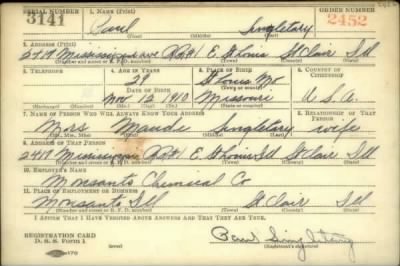 SERIAL NUMBER 1. NAME (Print) ORDER NUMBER
3141 Paul Singletary 2452
(First) (Middle) (Last)
2. ADDRESS (Print)
2419 Mississippi ave R#1 E. St Louis St Clair Ill
(Number and street or R. F. D. number) (Town) (County) (State)
3. TELEPHONE 4. AGE IN YEARS 5. PLACE OF BIRTH 6. COUNTRY OF CITIZENSHIP
28 St Louis Mo
DATE OF BIRTH (Town or county)
Nov 12 1910 Missouri U.S.A.
(Exchange) (Number) (Mo.) (Day) (Yr.) (State or country)
7. NAME OF PERSON WHO WILL ALWAYS KNOW YOUR ADDRESS 8. RELATIONSHIP OF THAT PERSON
Mrs Maude Singletary wife
(Mr., Mrs., Miss) (First) (Middle) (Last)
9. ADDRESS OF THAT PERSON
2419 Mississippi R#1 E. St Louis Ill St Clair Ill
(Number and street or R. F. D. number) (Town) (County) (State)
10. EMPLOYER'S NAME
Monsanto Chemical Co
11. PLACE OF EMPLOYMENT OR BUSINESS
Monsanto Ill St Clair Ill
(Number and street or R. F. D. number) (Town) (County) (State)
I AFFIRM THAT I HAVE VERIFIED ABOVE ANSWERS AND THAT THEY ARE TRUE.
REGISTRATION CARD Paul Singletary
D. S. S. Form 1 (Registrant's signature)